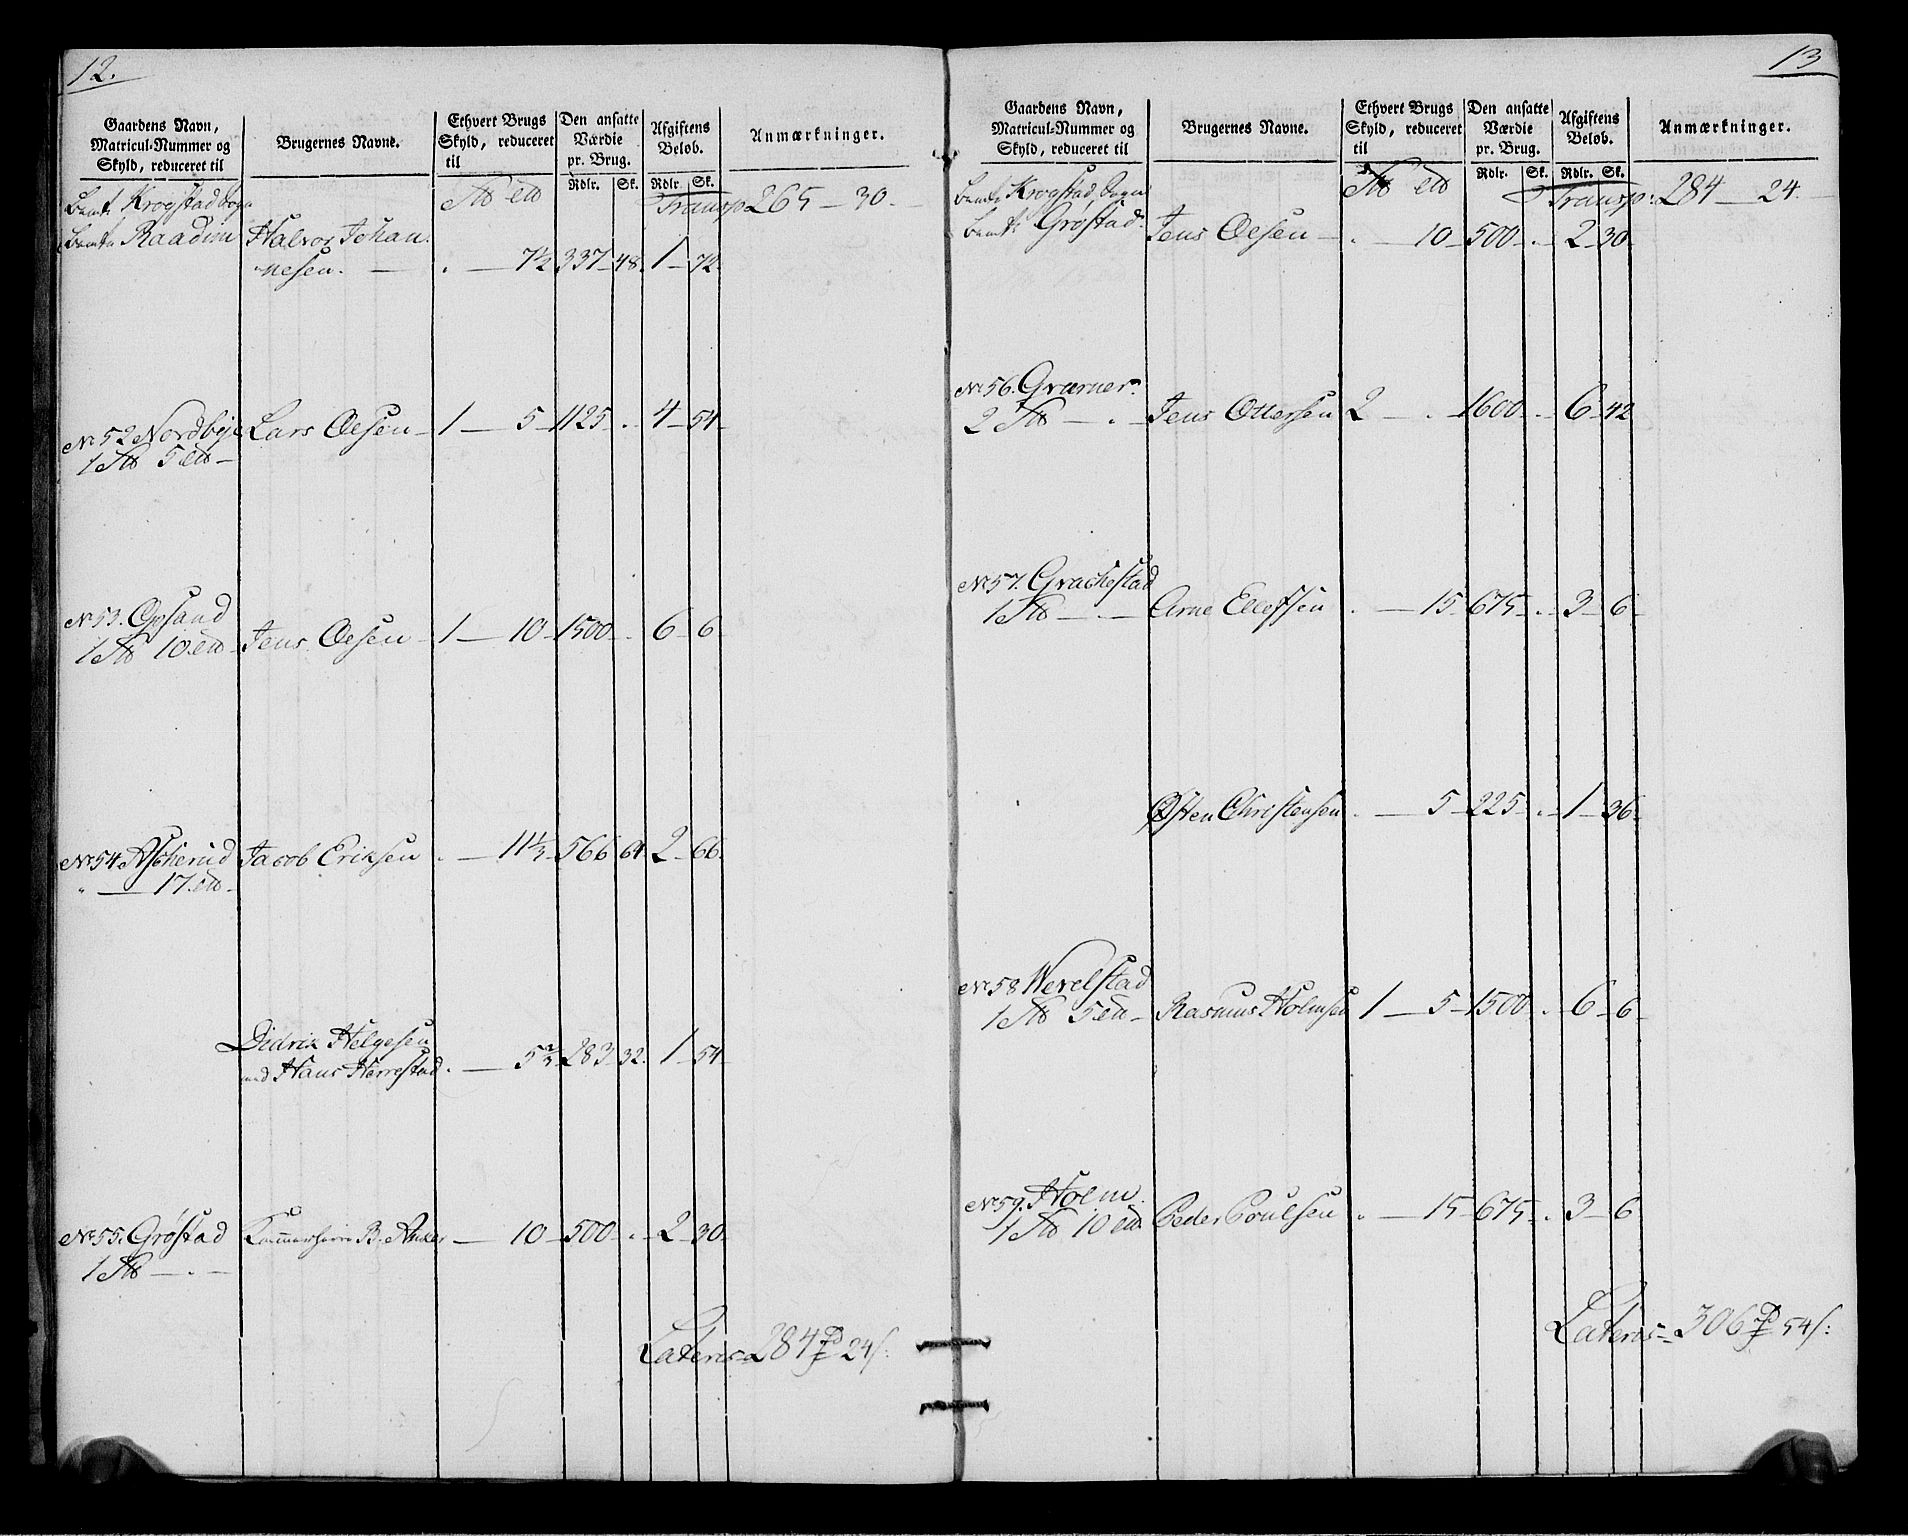 12.
Gaardens Navn, Matricul-Nummer og Skyld, reduceret til | Brugernes Navne. | Ethvert Brugs Skyld, reduceret til | Den ansatte Værdie pr. Brug. Rdlr. Sk. | Afgiftens Beløb. Rdlr. Sk. | Anmærkninger.
Transp 265 — 30.
Raadim Halvor Johan
nesen. — . — 7½ 337 48. 1 — 72.
No 52 Nordbye Lars Oesen — 1 — 5 — 1125 . 4 — 54
1 5
No 53. Opsand
1 10 Jens Oesen — 1 — 10 — 1500 . 6 — 6
No 54 Ascherud Jacob Eriksen . — 11⅓ 566 64 2 — 66.
" — 17
Didrik Helgesen
Hans Herrestad . — 5⅔ 283 32. 1 — 54
No 55. Grøstad Kammerherre B. Anker — 10 — 500 . 2 — 30
1 — . —
Lateris 284 24
13
Gaardens Navn, Matricul-Nummer og Skyld, reduceret til | Brugernes Navne. | Ethvert Brugs Skyld, reduceret til | Den ansatte Værdie pr. Brug. Rdlr. Sk. | Afgiftens Beløb. Rdlr. Sk. | Anmærkninger.
Krogstad Sogn
Transp: 284 — 24.
Grøstad Jens Oesen — . — 10 — 500 — . 2 — 30
No 56.
2 — . — Jens Ottersen 2 — . — 1600 . 6 — 42
No 57.
1 — . — Arne Elleffsen . — 15 — 675 — . 3 — 6
Østen Christensen . — 5 — 225 — . 1 — 36
No 58 Werelstad
1 5 — Rasmus Holmsen 1 — 5 — 1500 . 6 — 6
No 59. Holm.
1 10 Peder Poulsen . — 15 — 675 — . 3 — 6
Lateris 306 54